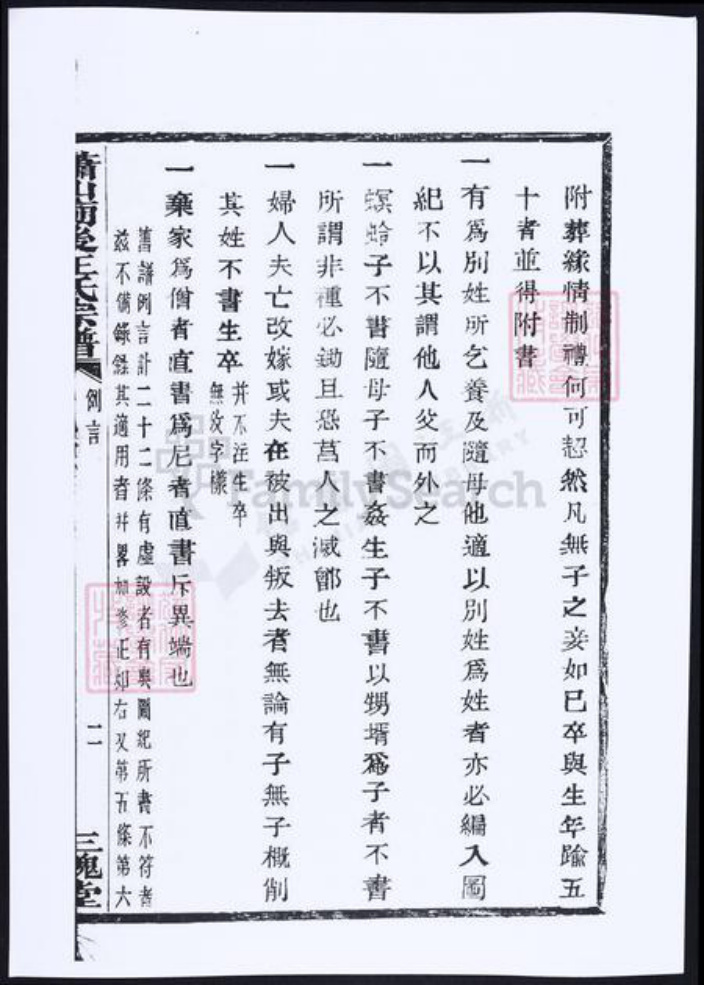 附葬緣情制禮何可恝然凡無子之妾如已卒與生年踰五
十者並得附書
一有爲別姓所乞養及隨母他適以別姓爲姓者亦必編入圖
紀不以其謂他人父而外之
一螟蛉子不書隨母子不書姦生子不書以甥壻爲子者不書
所謂非種必鋤且恐莒人之滅鄫也
一婦人夫亡改嫁或夫在被出與叛去者無論有子無子概削
其姓不書生卒 并不注生卒
無攷字樣
一棄家爲僧者直書爲尼者直書斥異端也
舊譜例言計二十二條有虛設者有與圖紀所書不符者
茲不備錄錄其適用者并畧加修正如右又第五條第六
蕭山前後王氏宗譜
例言
二
三槐堂
FamilySearch